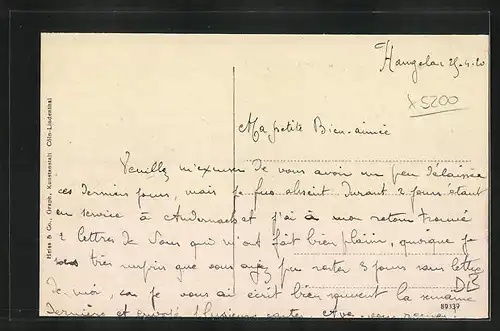 Hangelar 25.4.20
x 5200
Ma petite Bien-aimée
Veuillez m'excuser de vous avoir un peu délaissée
ces derniers jours, mais je fus absent durant 2 jours étant
en service à Andernach et j'ai à mon retour trouvé
2 lettres de Vous qui m'ont fait bien plaisir, quoique je
sois très surpris que vous ayez pu rester 8 jours sans lettre
de moi, car je vous ai écrit bien souvent la semaine
dernière et envoyé plusieurs cartes
DLB
89337
Heiss & Co., Graph. Kunstanstalt Cöln-Lindenthal